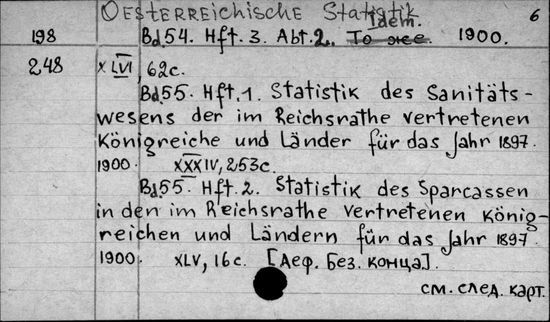 Oesterreichische Statistik 6
198 Bd.54. Hft. 3. Abt.2. То же. Idem. 1900.
248 XLVI, 62с.
Bd.55. Hft. 1. Statistik des Sanitäts-
wesens der im Reichsrathe vertretenen
Königreiche und Länder für das Jahr 1897.
1900. XXXIV, 253с.
Bd.55. Hft. 2. Statistik des Sparcassen
in den im Reichsrathe vertretenen König-
reichen und Ländern für das Jahr 1897
1900. XLV, 16с. [Деф. Без. конца.]
см. след. карт.